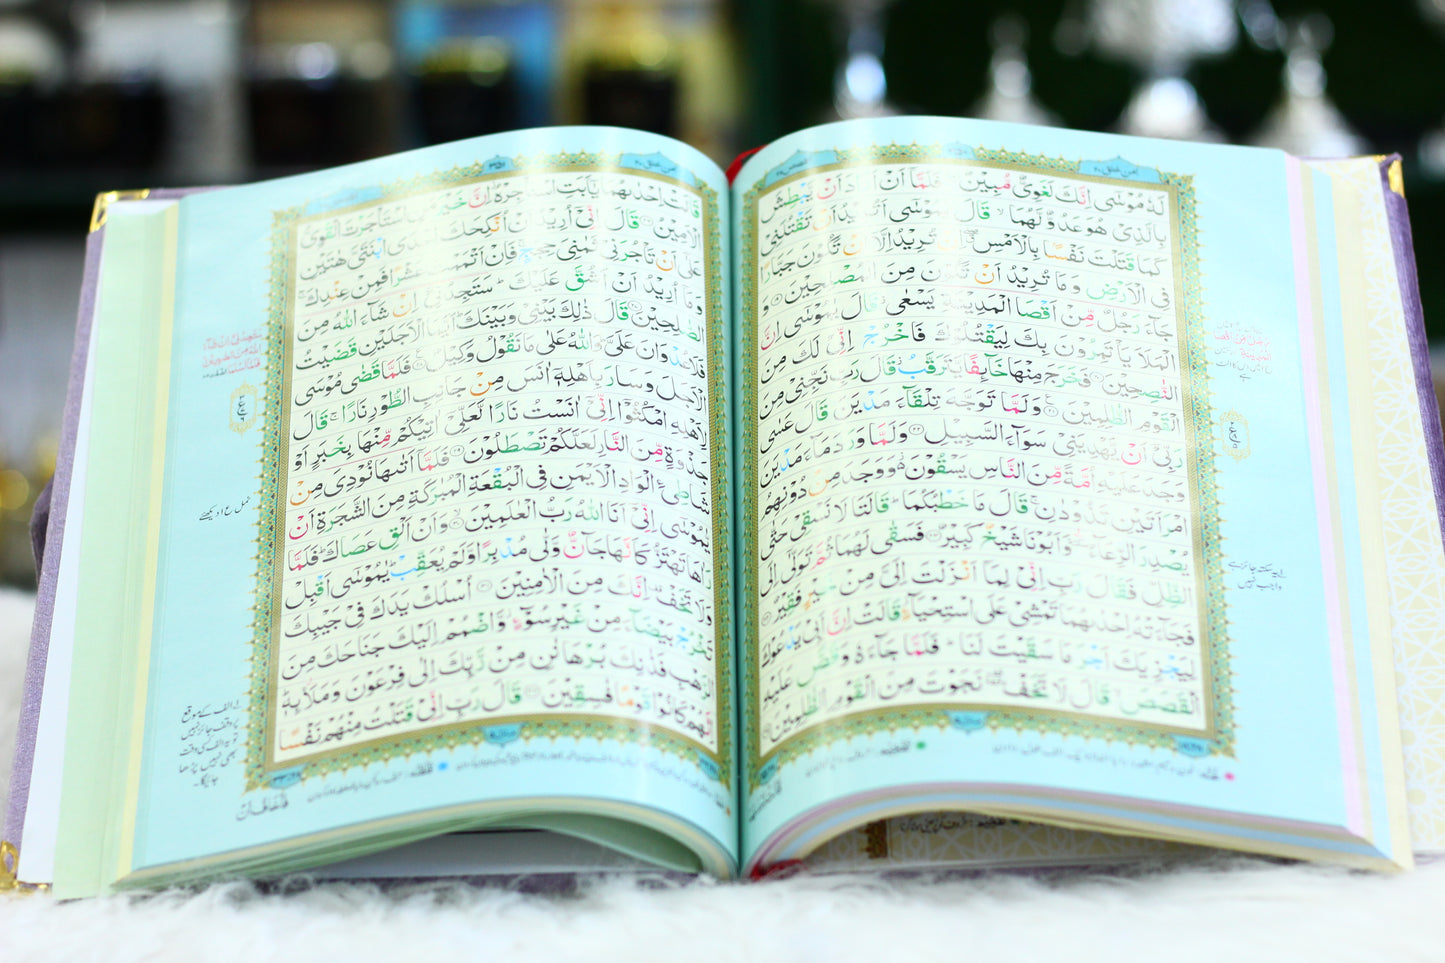 امن خلق ۲۰
القصص ۲۸
لَهٗ مُوْسٰۤى اِنَّكَ لَغَوِىٌّ مُّبِيْنٌ ۱۸ فَلَمَّاۤ اَنْ اَرَادَ اَنْ يَّبْطِشَ
بِالَّذِىْ هُوَ عَدُوٌّ لَّهُمَا ۙ قَالَ يٰمُوْسٰۤى اَتُرِيْدُ اَنْ تَقْتُلَنِىْ
كَمَا قَتَلْتَ نَفْسًۢا بِالْاَمْسِ اِنْ تُرِيْدُ اِلَّاۤ اَنْ تَكُوْنَ جَبَّارًا
فِى الْاَرْضِ وَمَا تُرِيْدُ اَنْ تَكُوْنَ مِنَ الْمُصْلِحِيْنَ ۱۹ وَ
جَآءَ رَجُلٌ مِّنْ اَقْصَا الْمَدِيْنَةِ يَسْعٰى قَالَ يٰمُوْسٰۤى اِنَّ
الْمَلَاَ يَاْتَمِرُوْنَ بِكَ لِيَقْتُلُوْكَ فَاخْرُجْ اِنِّىْ لَكَ مِنَ
النّٰصِحِيْنَ ۲۰ فَخَرَجَ مِنْهَا خَآئِفًا يَّتَرَقَّبُ قَالَ رَبِّ نَجِّنِىْ مِنَ
الْقَوْمِ الظّٰلِمِيْنَ ۲۱ وَلَمَّا تَوَجَّهَ تِلْقَآءَ مَدْيَنَ قَالَ عَسٰى
رَبِّىْۤ اَنْ يَّهْدِيَنِىْ سَوَآءَ السَّبِيْلِ ۲۲ وَلَمَّا وَرَدَ مَآءَ مَدْيَنَ
وَجَدَ عَلَيْهِ اُمَّةً مِّنَ النَّاسِ يَسْقُوْنَ وَوَجَدَ مِنْ دُوْنِهِمُ
امْرَاَتَيْنِ تَذُوْدٰنِ قَالَ مَا خَطْبُكُمَا قَالَتَا لَا نَسْقِىْ حَتّٰى
يُصْدِرَ الرِّعَآءُ وَاَبُوْنَا شَيْخٌ كَبِيْرٌ ۲۳ فَسَقٰى لَهُمَا ثُمَّ تَوَلّٰۤى اِلَى
الظِّلِّ فَقَالَ رَبِّ اِنِّىْ لِمَاۤ اَنْزَلْتَ اِلَىَّ مِنْ خَيْرٍ فَقِيْرٌ ۲۴
فَجَآءَتْهُ اِحْدٰىهُمَا تَمْشِىْ عَلَى اسْتِحْيَآءٍ قَالَتْ اِنَّ اَبِىْ يَدْعُوْكَ
لِيَجْزِيَكَ اَجْرَ مَا سَقَيْتَ لَنَا فَلَمَّا جَآءَهٗ وَقَصَّ عَلَيْهِ
الْقَصَصَ قَالَ لَا تَخَفْ نَجَوْتَ مِنَ الْقَوْمِ الظّٰلِمِيْنَ ۲۵
امن خلق ۲۰
قَالَتْ اِحْدٰىهُمَا يٰۤاَبَتِ اسْتَاْجِرْهُ اِنَّ خَيْرَ مَنِ اسْتَاْجَرْتَ الْقَوِىُّ
الْاَمِيْنُ ۲۶ قَالَ اِنِّىْۤ اُرِيْدُ اَنْ اُنْكِحَكَ اِحْدَى ابْنَتَىَّ هٰتَيْنِ
عَلٰۤى اَنْ تَاْجُرَنِىْ ثَمٰنِىَ حِجَجٍ فَاِنْ اَتْمَمْتَ عَشْرًا فَمِنْ عِنْدِكَ
وَمَاۤ اُرِيْدُ اَنْ اَشُقَّ عَلَيْكَ سَتَجِدُنِىْۤ اِنْ شَآءَ اللّٰهُ مِنَ
الصّٰلِحِيْنَ ۲۷ قَالَ ذٰلِكَ بَيْنِىْ وَبَيْنَكَ اَيَّمَا الْاَجَلَيْنِ قَضَيْتُ
فَلَا عُدْوَانَ عَلَىَّ وَاللّٰهُ عَلٰى مَا نَقُوْلُ وَكِيْلٌ ۲۸ فَلَمَّا قَضٰى مُوْسَى
الْاَجَلَ وَسَارَ بِاَهْلِهٖۤ اٰنَسَ مِنْ جَانِبِ الطُّوْرِ نَارًا قَالَ
لِاَهْلِهِ امْكُثُوْۤا اِنِّىْۤ اٰنَسْتُ نَارًا لَّعَلِّىْۤ اٰتِيْكُمْ مِّنْهَا بِخَبَرٍ اَوْ
جَذْوَةٍ مِّنَ النَّارِ لَعَلَّكُمْ تَصْطَلُوْنَ ۲۹ فَلَمَّاۤ اَتٰىهَا نُوْدِىَ مِنْ
شَاطِئِ الْوَادِ الْاَيْمَنِ فِى الْبُقْعَةِ الْمُبٰرَكَةِ مِنَ الشَّجَرَةِ اَنْ
يّٰمُوْسٰۤى اِنِّىْۤ اَنَا اللّٰهُ رَبُّ الْعٰلَمِيْنَ ۳۰ وَاَنْ اَلْقِ عَصَاكَ فَلَمَّا
رَاٰهَا تَهْتَزُّ كَاَنَّهَا جَآنٌّ وَّلّٰى مُدْبِرًا وَّلَمْ يُعَقِّبْ يٰمُوْسٰۤى اَقْبِلْ
وَلَا تَخَفْ اِنَّكَ مِنَ الْاٰمِنِيْنَ ۳۱ اُسْلُكْ يَدَكَ فِىْ جَيْبِكَ
تَخْرُجْ بَيْضَآءَ مِنْ غَيْرِ سُوْٓءٍ وَّاضْمُمْ اِلَيْكَ جَنَاحَكَ مِنَ
الرَّهْبِ فَذٰنِكَ بُرْهَانٰنِ مِنْ رَّبِّكَ اِلٰى فِرْعَوْنَ وَمَلَا۟ئِهٖ
اِنَّهُمْ كَانُوْا قَوْمًا فٰسِقِيْنَ ۳۲ قَالَ رَبِّ اِنِّىْ قَتَلْتُ مِنْهُمْ نَفْسًا
الف کے موقع
پر وقف جائز نہیں
تو یہ الف کی وقت
بھی نہیں پڑھا
جائیگا۔